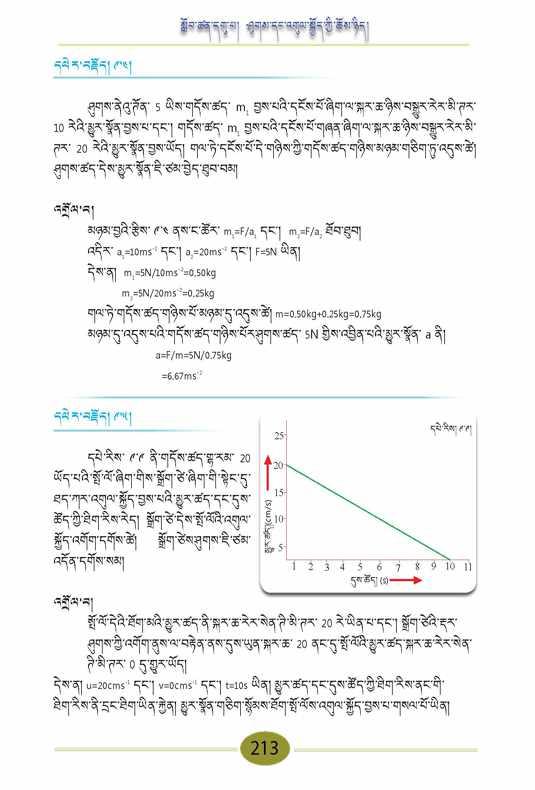 སློབ་ཚན་དགུ་པ། ཤུགས་དང་འགུལ་སྐྱོད་ཀྱི་ཆོས་ཉིད།
དཔེར་བརྗོད། ༩.༤།
ཤུགས་ནེའུ་ཊོན་ 5 ཡིས་གདོས་ཚད་ m₁ བྱས་པའི་དངོས་པོ་ཞིག་ལ་སྐར་ཆ་ཉིས་བསྒྱུར་རེར་མི་ཊར་
10 རེའི་མྱུར་སྣོན་བྱས་པ་དང་། གདོས་ཚད་ m₂ བྱས་པའི་དངོས་པོ་གཞན་ཞིག་ལ་སྐར་ཆ་ཉིས་བསྒྱུར་རེར་མི་
ཊར་ 20 རེའི་མྱུར་སྣོན་བྱས་ཡོད། གལ་ཏེ་དངོས་པོ་དེ་གཉིས་ཀྱི་གདོས་ཚད་གཉིས་མཉམ་གཅིག་ཏུ་འདུས་ཚེ།
ཤུགས་ཚད་དེས་མྱུར་སྣོན་ཇི་ཙམ་བྱེད་ཐུབ་བམ།
འགྲོལ་བ།
མཉམ་བྱའི་རྩིས་ ༩.༤ ནས་ང་ཚོར་ m₁=F/a₁ དང་། m₂=F/a₂ ཐོབ་ཐུབ།
འདིར་ a₁=10ms⁻² དང་། a₂=20ms⁻² དང་། F=5N ཡིན།
དེས་ན། m₁=5N/10ms⁻²=0.50kg
m₂=5N/20ms⁻²=0.25kg
གལ་ཏེ་གདོས་ཚད་གཉིས་པོ་མཉམ་དུ་འདུས་ཚེ། m=0.50kg+0.25kg=0.75kg
མཉམ་དུ་འདུས་པའི་གདོས་ཚད་གཉིས་པོར་ཤུགས་ཚད་ 5N གྱིས་འབྱིན་པའི་མྱུར་སྣོན་ a ནི།
a=F/m=5N/0.75kg
=6.67ms⁻²
དཔེར་བརྗོད། ༩.༥།
དཔེ་རིས་ ༩.༩ ནི་གདོས་ཚད་གྷ་རམ་ 20
ཡོད་པའི་སྤོ་ལོ་ཞིག་གིས་སྒྲོག་ཙེ་ཞིག་གི་སྟེང་དུ་
ཐད་ཀར་འགུལ་སྐྱོད་བྱས་པའི་མྱུར་ཚད་དང་དུས་
ཚོད་ཀྱི་ཐིག་རིས་རེད། སྒྲོག་ཙེ་དེས་སྤོ་ལོའི་འགུལ་
སྐྱོད་འགོག་དགོས་ཚེ། སྒྲོག་ཙེས་ཤུགས་ཇི་ཙམ་
འདོན་དགོས་སམ།
དཔེ་རིས། ༩.༩།
25
20
15
10
5
མྱུར་ཚད།(cm/s)
1 2 3 4 5 6 7 8 9 10 11
དུས་ཚོད། (s)
འགྲོལ་བ།
སྤོ་ལོ་དེའི་ཐོག་མའི་མྱུར་ཚད་ནི་སྐར་ཆ་རེར་སེན་ཊི་མི་ཊར་ 20 རེ་ཡིན་པ་དང་། སྒྲོག་ཙེའི་རྡར་
ཤུགས་ཀྱི་འགོག་ནུས་ལ་བརྟེན་ནས་དུས་ཡུན་སྐར་ཆ་ 20 ནང་དུ་སྤོ་ལོའི་མྱུར་ཚད་སྐར་ཆ་རེར་སེན་
ཊི་མི་ཊར་ 0 དུ་གྱུར་ཡོད།
དེས་ན། u=20cms⁻¹ དང་། v=0cms⁻¹ དང་། t=10s ཡིན། མྱུར་ཚད་དང་དུས་ཚོད་ཀྱི་ཐིག་རིས་ནང་གི་
ཐིག་རིས་ནི་དྲང་ཐིག་ཡིན་རྐྱེན། མྱུར་སྣོན་གཅིག་སྙོམས་ཐོག་སྤོ་ལོས་འགུལ་སྐྱོད་བྱས་པ་གསལ་པོ་ཡིན།
213